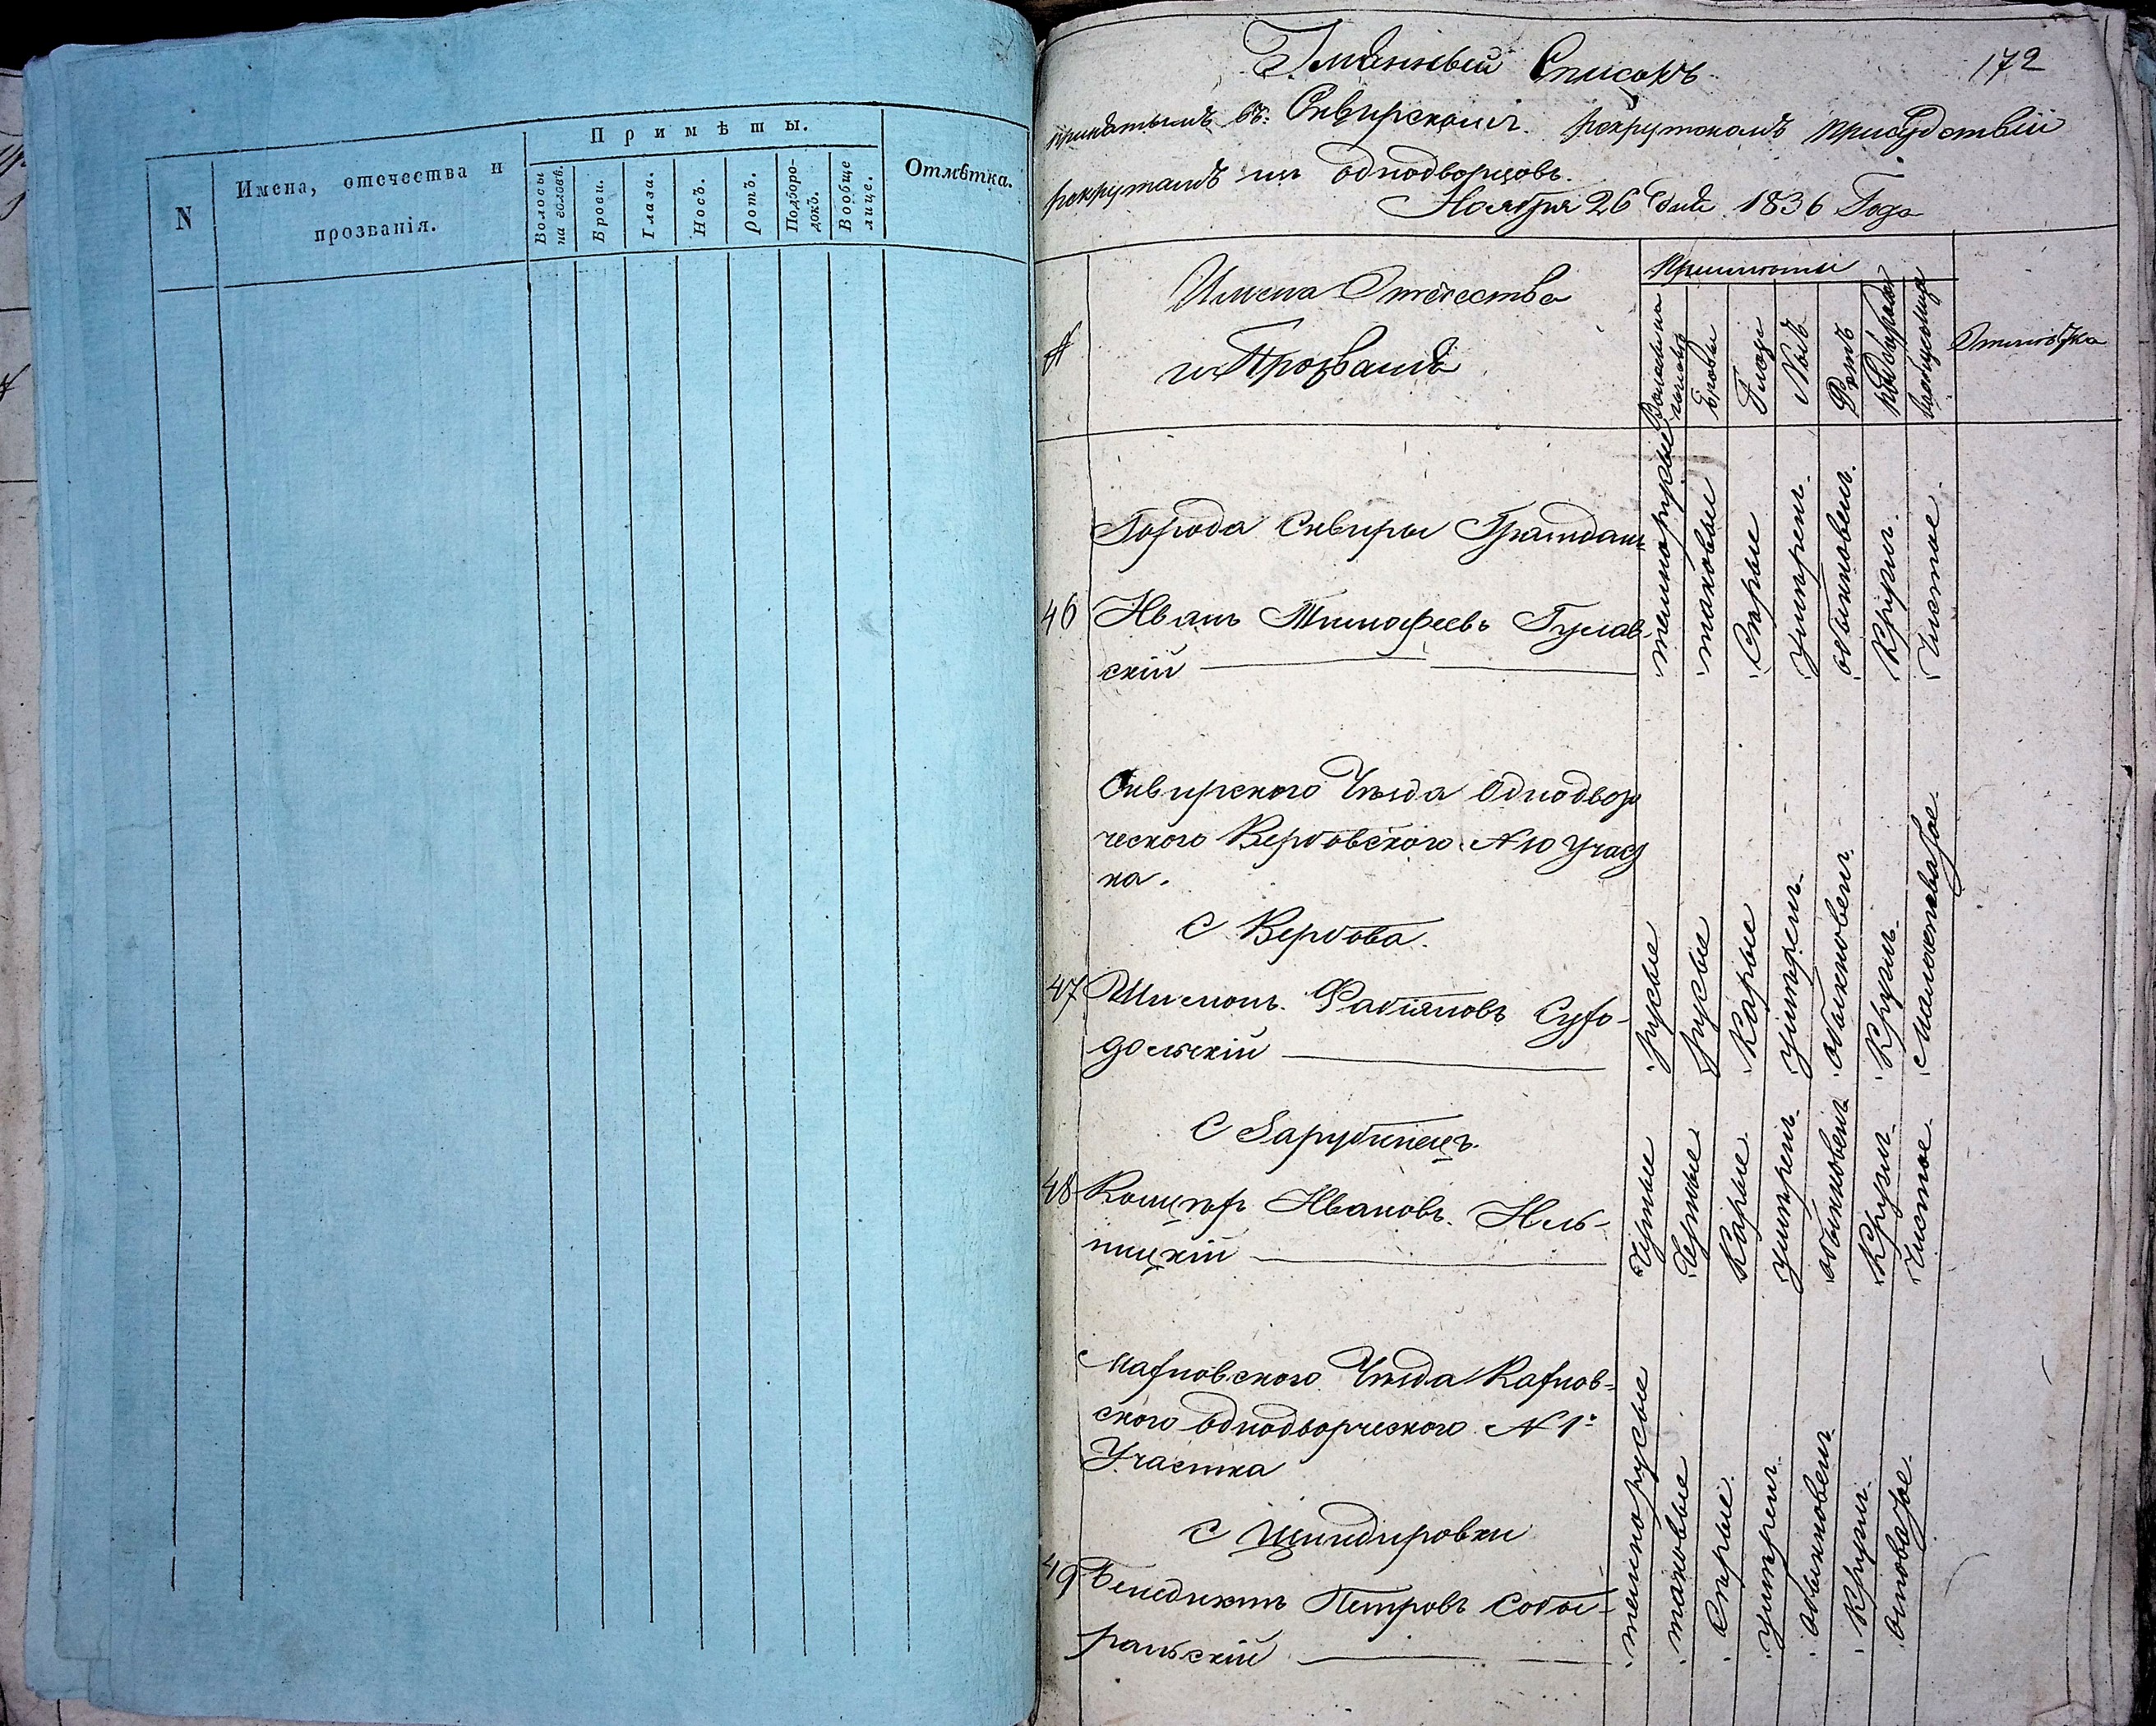 N
Имена, отечества и
прозванія.
Примѣты.
Волосы
на головѣ.
Брови.
Глаза.
Носъ.
Ротъ.
Подборо-
докъ.
Вообще
лице.
Отмѣтка.
172
Имянный Списокъ
принятымъ въ Сквирскомъ рекрутскомъ присудствіи
рекрутамъ изъ однодворцовъ.
Ноября 26 дня 1836 Года
N
Имена Отечества
и Прозванія
Примѣты
Волосы на
головѣ
Брови
Глаза
Носъ
Ротъ
Подбородокъ
Вообще лице
Отмѣтка
Города Сквиры Граждан.
46 Иванъ Тимофеевъ
скій
темнорусые
таковые
Сѣрые
умѣрен.
обыкновен.
Кругл.
Чистое.
Сквирского Уѣзда Однодвор
ческого Вербовского N 10 Участ
ка.
С Вербова.
47 Шимонъ Фабіяновъ Сухо-
дольскій
русые
русые
Карые
умѣрен.
обыкновен.
Кругл.
С Зарубинецъ.
48 Иванов. Иль-
ницкій
Черные
Черные
Карые
умѣрен.
обыкновен.
Кругл.
Чистое.
Махновского Уѣзда Махнов-
ского Однодворческого N 1º
Участка
С
49 Бенедиктъ Петровъ
темнорусые
таковые
Сѣрые.
умѣрен.
обыкновен.
Кругл.